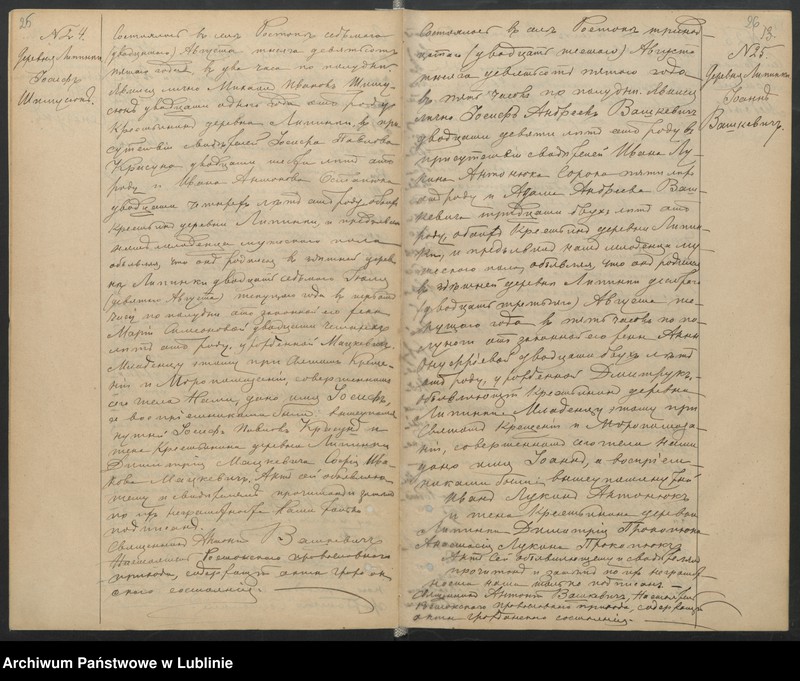 25
№ 24.
Деревня Липинки
Іосифъ
Состоялось въ селѣ Ростокѣ седьмаго
(двадцатаго) Августа тысяча девятьсотъ
пятаго года, въ два часа по полудни
Явился лично Михаилъ Ивановъ
двадцати одного года отъ роду
Крестьянинъ деревни Липинки, въ при
сутствіи свидѣтелей Іосифа Павлова
двадцати лѣтъ отъ
роду и Ивана Антонова
двадцати лѣтъ отъ роду, обоихъ
Крестьянъ деревни Липинки, и предъявилъ
намъ младенца мужескаго пола
объявляя, что онъ родился въ здѣшней дерев
нѣ Липинки двадцать седьмаго Іюля
(девятаго Августа) текущаго года въ
часу по полудни отъ законной его жены
Маріи Симеоновой двадцати четырехъ
лѣтъ отъ роду, урожденной Мацкевичъ.
Младенцу этому при Святомъ Креще
ніи и Муропомазаніи, совершенномъ
сего числа Нами, дано имя Іосифъ,
а воспріемниками были вышеупомя
нутый Іосифъ Павловъ и
жена Крестьянина деревни Липинки
Димитрія Мацкевича Софія Ива
нова Мацкевичъ. Актъ сей объявляю
щему и свидѣтелямъ прочитанъ и
по ихъ неграмотности Нами только
подписанъ.
Священникъ Антоній Вашкевичъ
Настоятель Ростокскаго православнаго
прихода, содержащій акты граждан
скаго состоянія.
26
18.
№ 25
Деревня Липинки
Іоаннъ
Вашкевичъ.
Состоялось въ селѣ Ростокѣ тринад
цатаго (двадцать шестаго) Августа
тысяча девятьсотъ пятаго года
въ пять часовъ по полудни. Явился
лично Іосифъ Андреевъ Вашкевичъ
двадцати девяти лѣтъ отъ роду въ
присутствіи свидѣтелей Ивана Лу
кина Антонюка Сорока пяти лѣтъ
отъ роду и Адама Андреева Ваш
кевича тридцати двухъ лѣтъ отъ
роду, обоихъ Крестьянъ деревни Липин
ки, и предъявилъ намъ младенца му
жескаго пола, объявляя, что онъ родился
въ здѣшней деревнѣ Липинки десятаго
(двадцать третьяго) Августа те
кущаго года въ пять часовъ по по
лудни отъ законной его жены Анны
Онуфріевой двадцати двухъ лѣтъ
отъ роду, урожденной Дмитрукъ,
объявляющій Крестьянинъ деревни
Липинки Младенцу этому при
Святомъ Крещеніи и Муропомаза
ніи, совершенномъ сего числа Нами
дано имя Іоаннъ, а воспріем
никами были вышеупомянутый
Иванъ Лукинъ Антонюкъ
и жена Крестьянина деревни
Липинки Димитрія Прокопюка
Анастасія Лукина Прокопюкъ
Актъ сей объявляющему и свидѣтелямъ
прочитанъ и по ихъ неграмот
ности Нами только подписанъ
Священникъ Антоній Вашкевичъ, Настоятель
Ростокскаго православнаго прихода, содержащій
акты гражданскаго состоянія.
Archiwum Państwowe w Lublinie